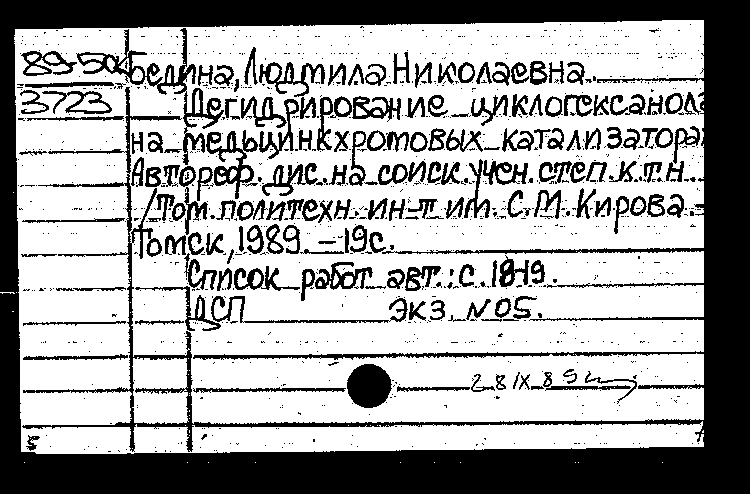 89-50к Бедина, Людмила Николаевна
3723 Дегидрирование циклогексанола
на медьцинкхромовых катализаторах
Автореф. дис. на соиск. учен. степ. к.т.н.
/Том. политехн. ин-т им. С.М. Кирова. -
Томск, 1989. - 19 с.
Список работ авт.: с. 18-19.
ДСП ЭКЗ. N 05.
28 IX 89
5